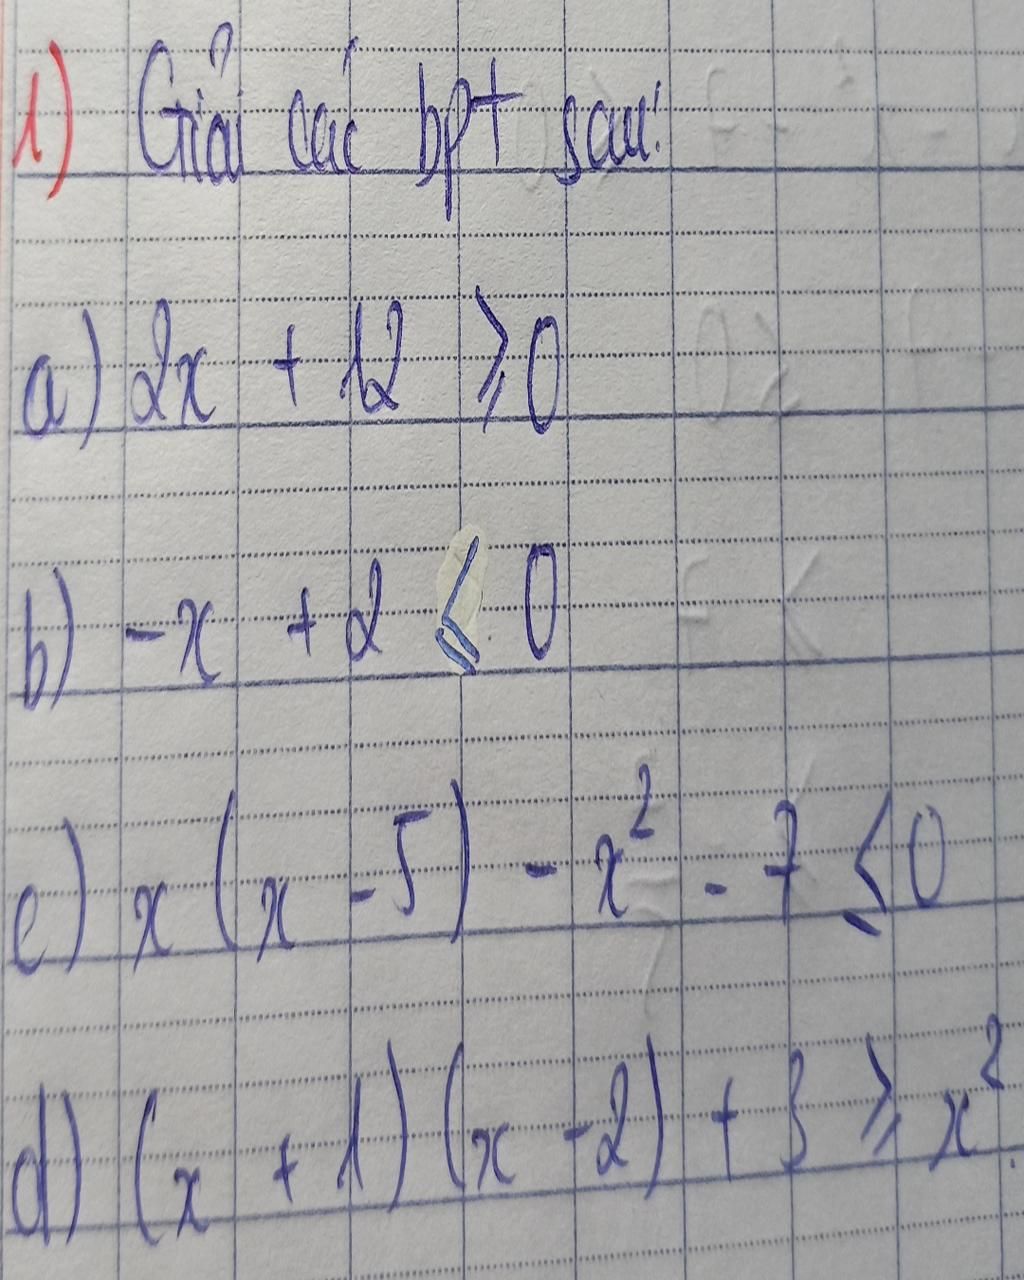 1) Giải các bpt sau:
a) 2x + 12 ⩾ 0
b) -x + 2 ⩽ 0
c) x(x - 5) - x² - 7 ⩽ 0
d) (x + 1)(x - 2) + 3 ⩾ x²